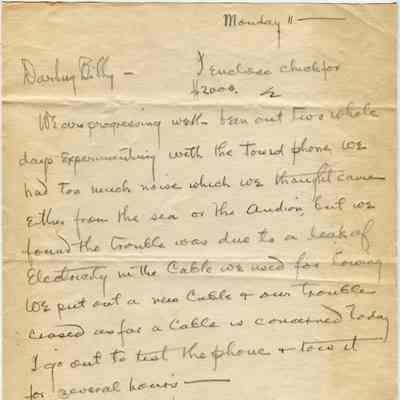 Monday 11 —
Darling Billy — I enclose check for
$2000.
We are progressing well - been out two whole
days experimenting with the towed phone, we
had too much noise which we thought came
either from the sea or the Audion, but we
found the trouble was due to a leak of
Electricity in the Cable we used for towing
We put out a new Cable & our trouble
ceased as far a Cable is concerned Today
I go out to test the phone & tow it
for several hours —